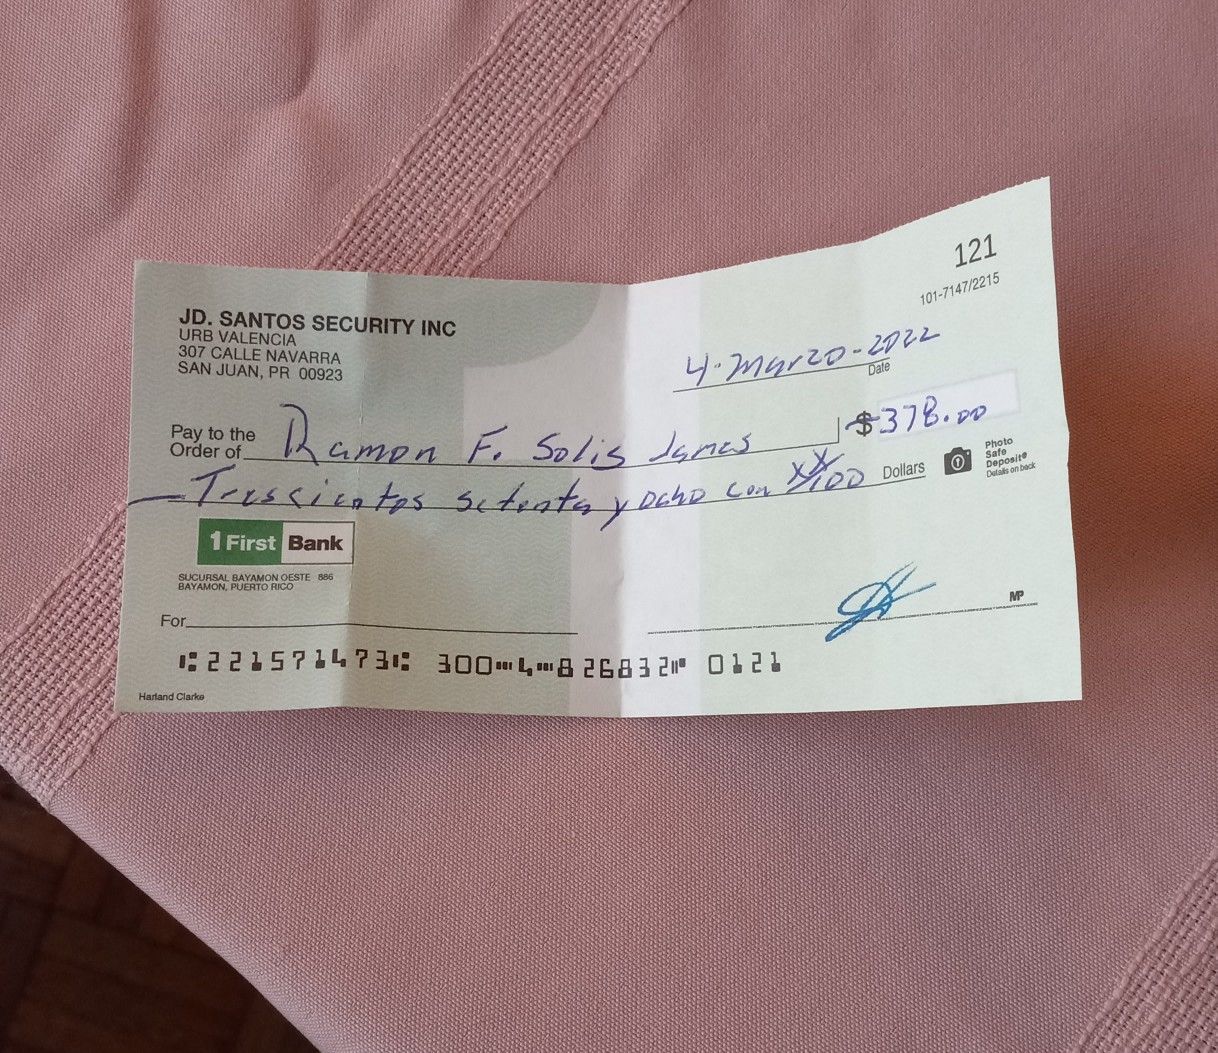 121
101-7147/2215
JD. SANTOS SECURITY INC
URB VALENCIA
307 CALLE NAVARRA
SAN JUAN, PR 00923
4-Marzo-2022
Date
Pay to the
Order of Ramon F. Solis James
$378.00
Trescientos setenta y ocho con xx/100 Dollars
Photo
Safe
Deposit®
Details on back
1 First Bank
SUCURSAL BAYAMON OESTE 886
BAYAMON, PUERTO RICO
For
MP
⑆221571473⑆ 300⑉4⑉826832⑈ 0121
Harland Clarke